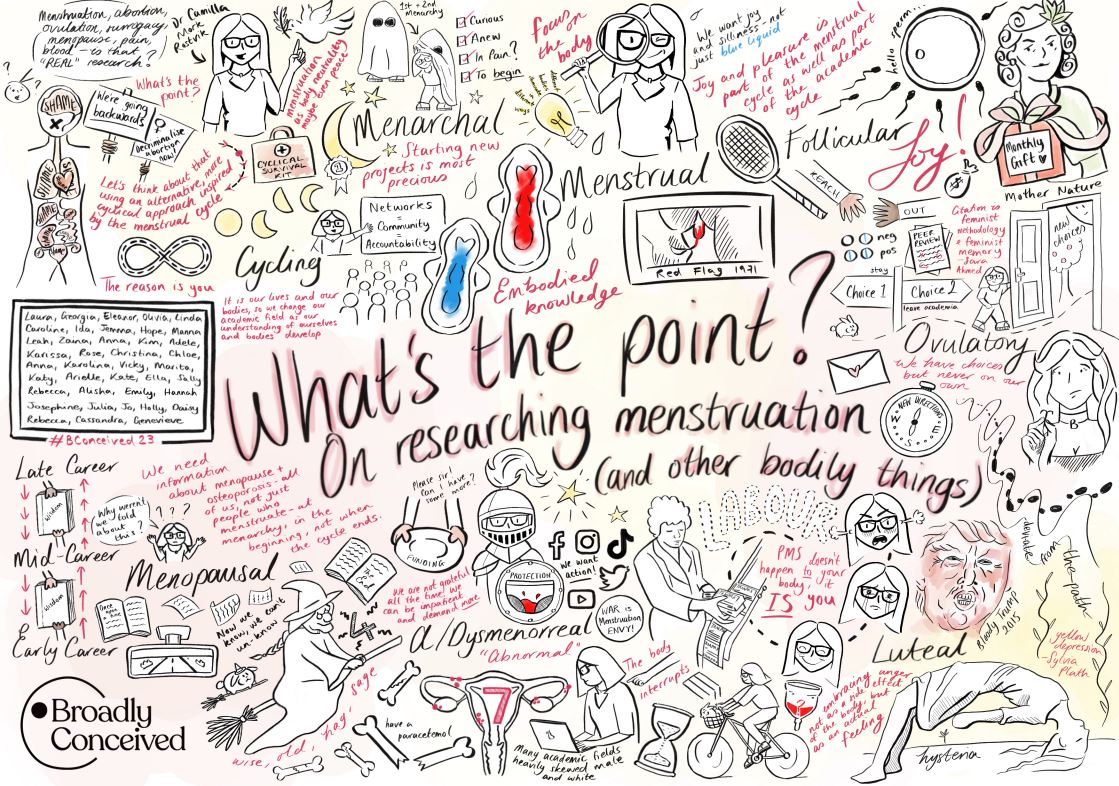 Menstruation, abortion,
ovulation, surrogacy,
menopause, pain,
blood - is that
"REAL" research?
Dr Camilla
Mørk
Røstvik
What's the
point?
SHAME
We're going
backwards
Decriminalise
abortion
now!
Let's think about that
using an alternative, more
cyclical approach inspired
by the menstrual cycle
menstruation
as body neutrality
maybe even peace
CYCLICAL
SURVIVAL
KIT
1st + 2nd
Menarchy
Curious
Anew
In Pain?
To begin
Menarchal
Starting new
projects is most
precious
Focus
on
the
body
We want joy
and silliness - not
just blue liquid
Joy and pleasure is
part of the menstrual
cycle as well as part
of the academic
cycle
hello sperm...
Follicular
Joy!
Monthly
Gift
Mother Nature
REACH
OUT
neg
pos
PEER
REVIEW
Citation is
feminist
methodology
& feminist
memory
- Sara
Ahmed
new
choices
stay
Choice 1
Choice 2
leave academia
Menstrual
Red Flag 1971
Embodied
knowledge
Networks
=
Community
=
Accountability
Cycling
The reason is you
It is our lives and our
bodies, so we change our
academic field as our
understanding of ourselves
and bodies develop
Laura, Georgia, Eleanor, Olivia, Linda
Caroline, Ida, Jemma, Hope, Manna
Leah, Zaina, Anna, Kim, Adele,
Karissa, Rose, Christina, Chloe,
Anna, Karolina, Vicky, Marita,
Katy, Arielle, Kate, Ella, Sally
Rebecca, Alisha, Emily, Hannah
Josephine, Julia, Jo, Holly, Daisy
Rebecca, Cassandra, Genevieve
#BConceived23
What's the point?
On researching menstruation
(and other bodily things)
Ovulatory
We have choices
but never on our
own
NEW DIRECTIONS
N
E
S
W
B
Late Career
wisdom
Mid-Career
wisdom
Early Career
We need
information
about menopause +
osteoporosis - all
of us, not just
people who
menstruate - at
menarchy, in the
beginning, not when
the cycle ends.
???
Why weren't
we told
about
this?
Menopausal
Once
upon
a time
The
End
Now we
know, we can't
un-know
wise, old, hag, sage
Please sir!
Can I have
some more?
FUNDING
We are not grateful
all the time. We
can be impatient
and demand more
PROTECTION
We want
action!
WAR IS
Menstruation
ENVY!
a/Dysmenorreal
"Abnormal"
have a
paracetemol
7
Many academic fields
heavily skewed male
and white
The body
interrupts
ABOUT
PMS doesn't
happen to your
body, it
IS you
Luteal
embracing anger
not as a side effect
of the body, but
as an actual
feeling
Bloody Trump
2015
deviate from the path
yellow
depression
Sylvia
Plath
hysteria
Broadly
Conceived